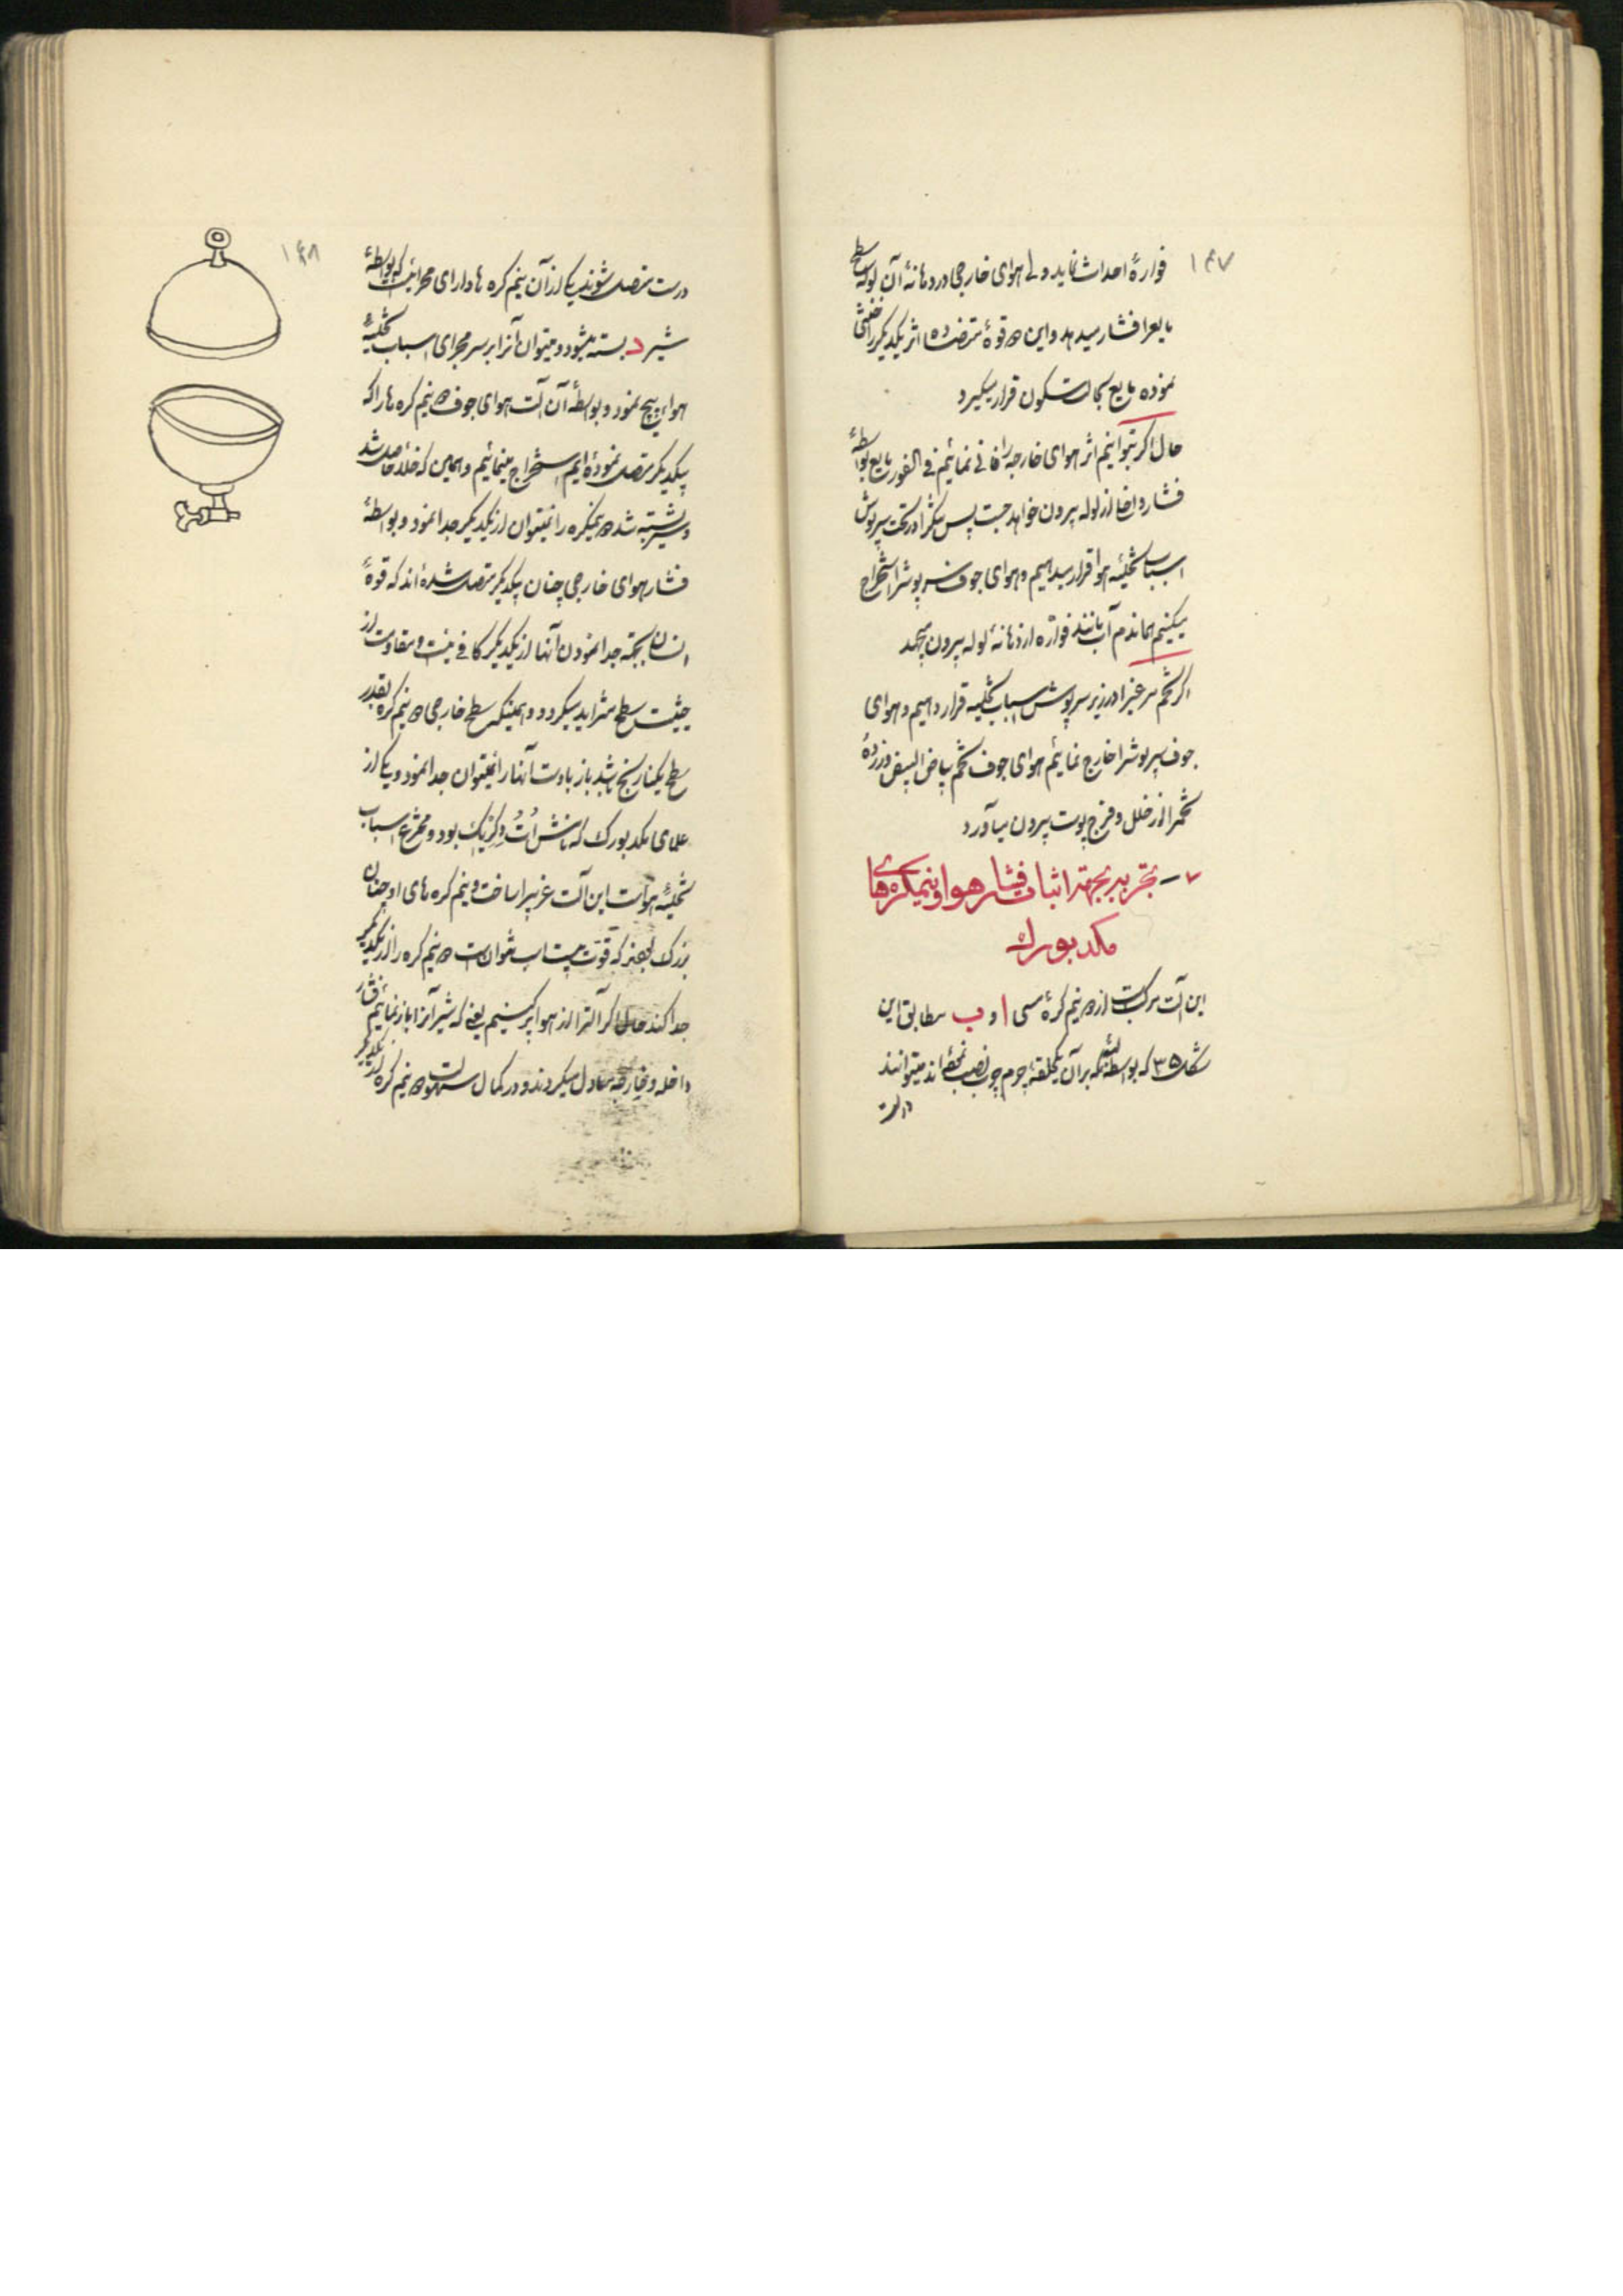 ۱۴۷
فوارهٔ احداث نماید ولی هوای خارجی در دهانهٔ آن لوله سطح
مایع را فشار میدهد و این دو قوهٔ متضاده اثر یکدیگر را خنثی
نموده مایع بحالت سکون قرار میگیرد
حال اگر بتوانیم اثر هوای خارجه را فانی نمائیم فی الفور مایع بواسطهٔ
فشار داخل از لوله بیرون خواهد جست پس مکثرا در تحت سرپوش
اسباب تخلیهٔ هوا قرار میدهیم و هوای جوف سرپوش را استخراج
میکنیم هماندم آب مانند فواره از دهانهٔ لوله بیرون میجهد
اگر تخم مرغیرا در زیر سرپوش اسباب تخلیه قرار دهیم و هوای
جوف سرپوش را خارج نمائیم هوای جوف تخم بیاض البیض و زردهٔ
تخمرا از خلل و فرج پوست بیرون میآورد
۷ – تجربه بجهة اثبات فشار هوا و نیمکره های
مکد بورك
این آلت مرکبست از دو نیم کرهٔ مسی ا و ب مطابق این
شکل ۳۵ که بواسطهٔ لبهٔ که بر آن یکحلقهٔ چرم چرب نصب نموده‌اند میتوانند
درست
۱۴۸
درست متصل شوند یکی از آن نیم کره ها دارای مجرائیست که بواسطهٔ
شیر د بسته میشود و میتوان آنرا بر سر مجرای اسباب تخلیهٔ
هوا پیچ نمود و بواسطهٔ آن آلت هوای جوف دو نیم کره ها را که
بیکدیگر متصل نموده‌ایم استخراج مینمائیم و همین که خلاء حاصل شد
و شیر بسته شد دو نیمکره را نمیتوان از یکدیگر جدا نمود و بواسطهٔ
فشار هوای خارجی چنان بیکدیگر متصل شده‌اند که قوهٔ
انسان بجهة جدا نمودن آنها از یکدیگر کافی نیست و مقاومت از
حیثیت سطح متزاید میگردد و همینکه سطح خارجی دو نیم کره بقدر
سطح یکنارنج باشد باز با دست آنها را نمیتوان جدا نمود و یکی از
علمای مکد بورک که نامش اُتُ دِ گِرِیک بود و مخترع اسباب
تخلیهٔ هواست این آلت غریبرا ساخت و نیم کره های او چنان
بزرگ بودند که قوّت بیست اسب نتوانست دو نیم کره را از یکدیگر
جدا کند حال اگر آلترا از هوا پر کنیم یعنی که شیر آنرا باز نمائیم فشار
داخله و خارجه معادل میگردند و در کمال سهولت دو نیم کره از یکدیگر